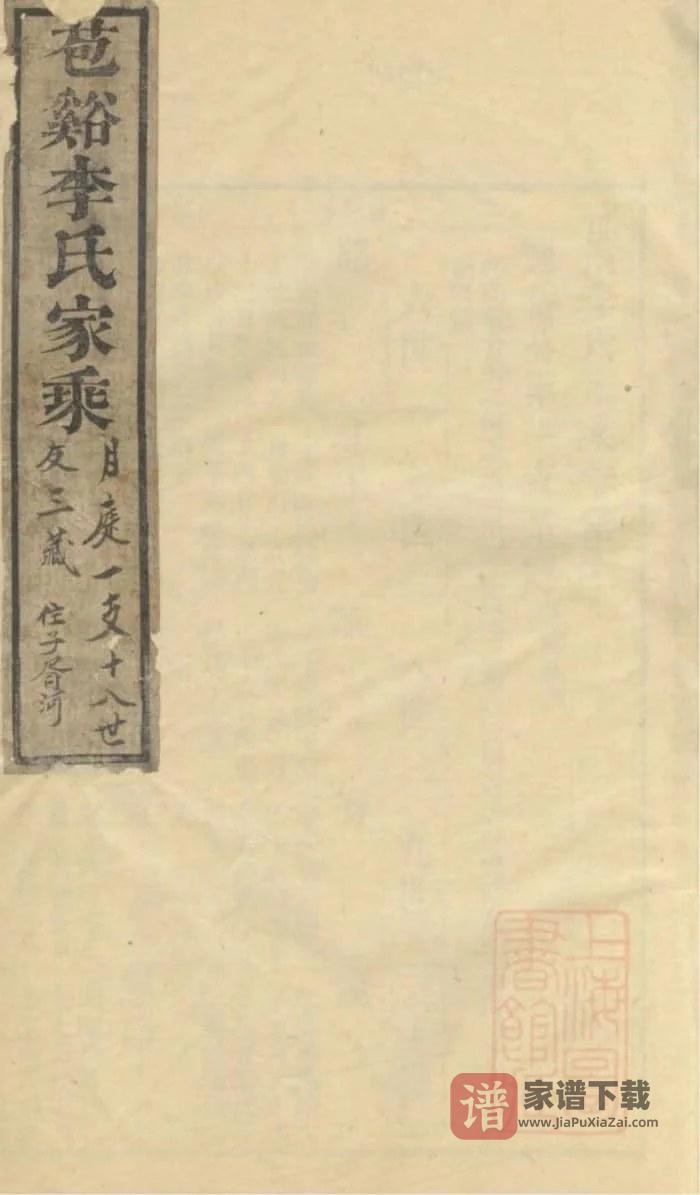 苞谿李氏家乘
月庭一支十八世
友三藏 住子胥河
上海圖
書館
谱 家谱下载
www.JiaPuXiaZai.com